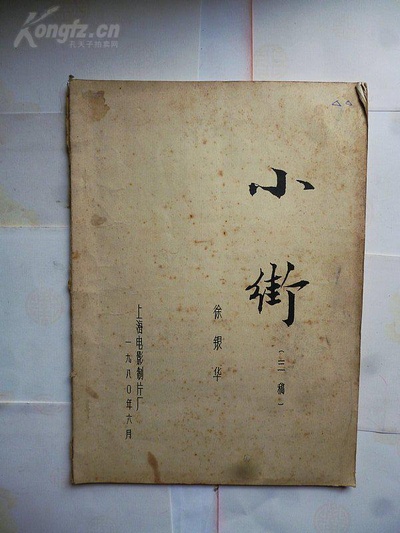 Kongfz.cn
孔夫子拍卖网
小街
（三稿）
徐银华
上海电影制片厂
一九八〇年六月